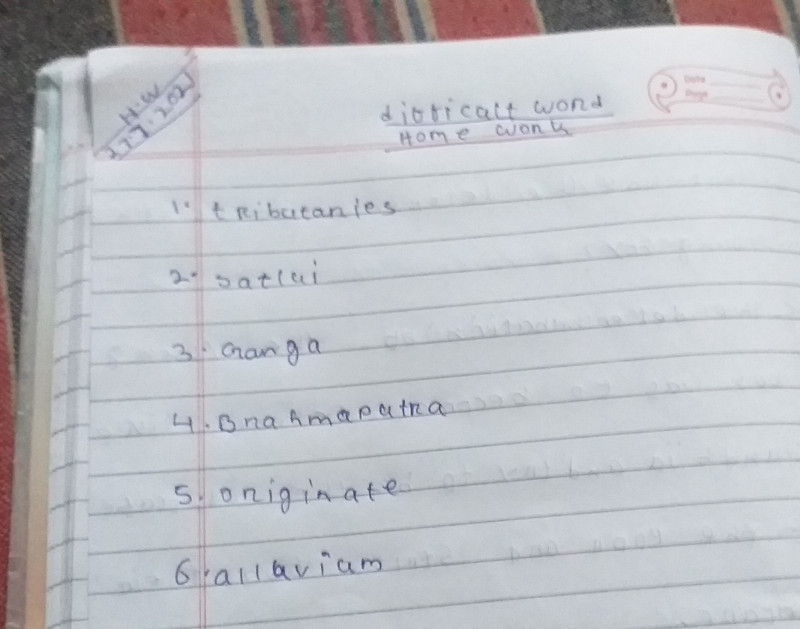 H.W
27.7.2021
dificalt word
Home work
Date
Page
1. tributaries
2. satlui
3. Ganga
4. Brahmaputra
5. originate
6. alluvium